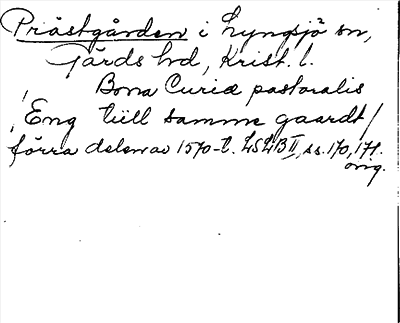 Prästgården i Lyngsjö sn,
Gärds hd, Krist. l.
Bona Curiæ pastoralis
Eng till samme gaardt/
förra delen av 1570-t. LSLB II, ss. 170, 171.
orig.